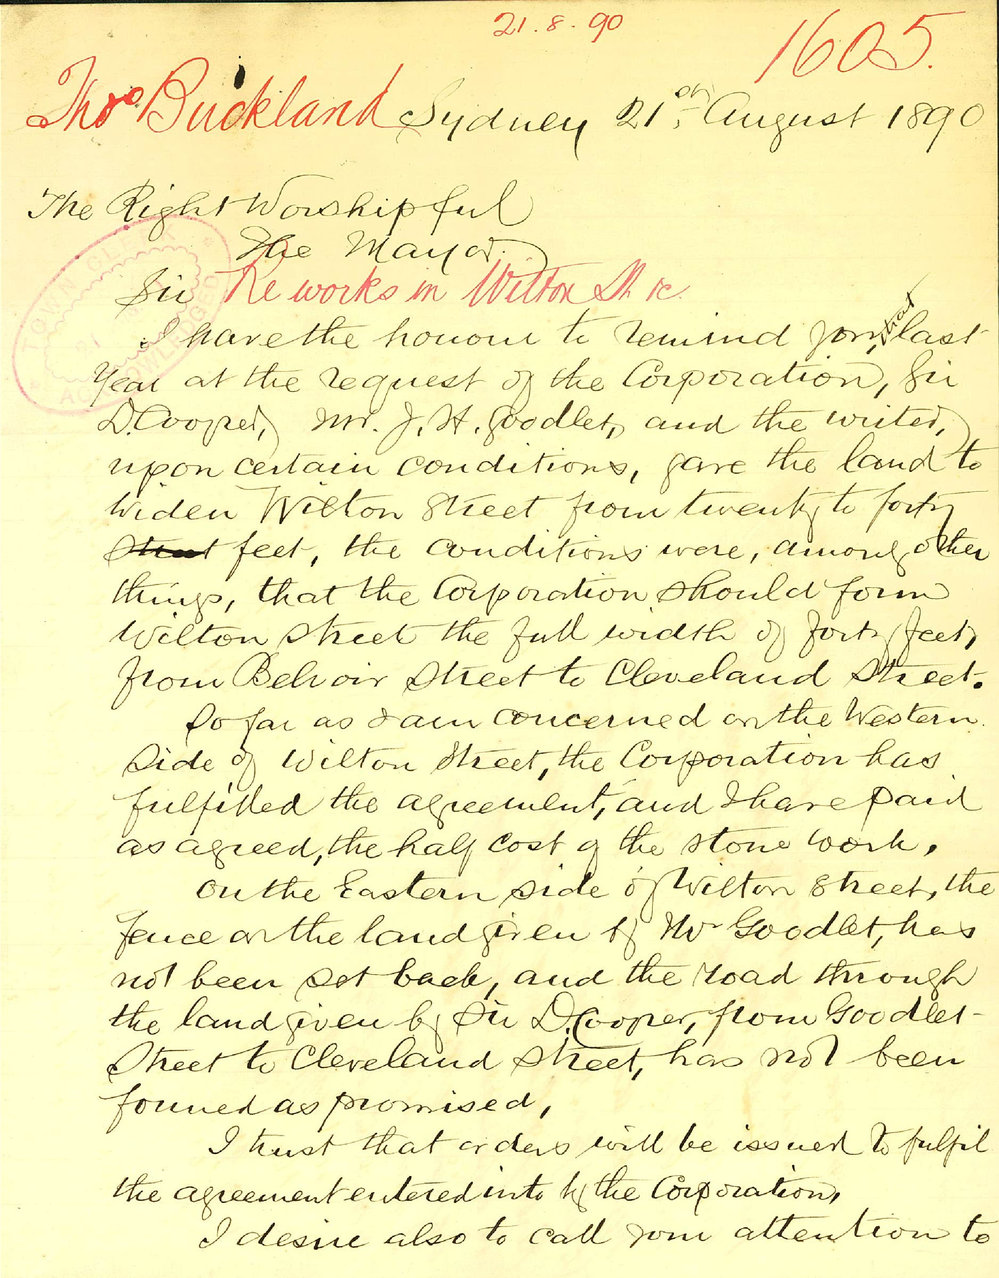 21.8.90
1605.
Thos Buckland Sydney 21st August 1890
The Right Worshipful
The Mayor.
Sir Re works in Wilton St &c.
TOWN CLERK
21
ACKNOWLEDGED
I have the honour to remind you, that last
Year at the request of the Corporation, Sir
D. Cooper, Mr. J. H. Goodlet, and the writer,
upon certain conditions, gave the land to
widen Wilton Street from twenty to forty
Street feet, the conditions were, among other
things, that the Corporation should form
Wilton Street the full width of forty feet,
from Belvoir Street to Cleveland Street.
So far as I am concerned on the Western
side of Wilton Street, the Corporation has
fulfilled the agreement, and I have paid
as agreed, the half cost of the stone work.
On the Eastern side of Wilton Street, the
Fence on the land given by Mr Goodlet, has
not been set back, and the road through
the land given by Sir D. Cooper, from Goodlet-
Street to Cleveland Street, has not been
formed as promised,
I trust that orders will be issued to fulfil
the agreement entered into by the Corporation,
I desire also to call your attention to